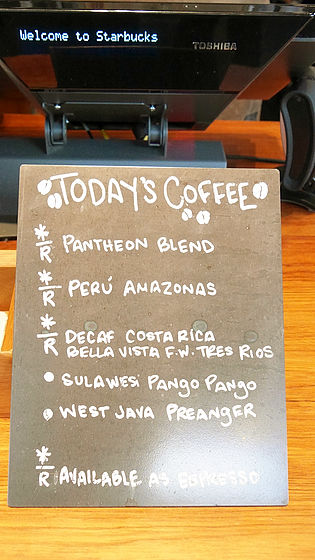 Welcome to Starbucks
TOSHIBA
TODAY'S COFFEE
*
R PANTHEON BLEND
*
R PERÚ AMAZONAS
*
R DECAF COSTA RICA
BELLA VISTA F.W. TRES RIOS
• SULAWESI PANGO PANGO
• WEST JAVA PREANGER
*
R AVAILABLE AS ESPRESSO